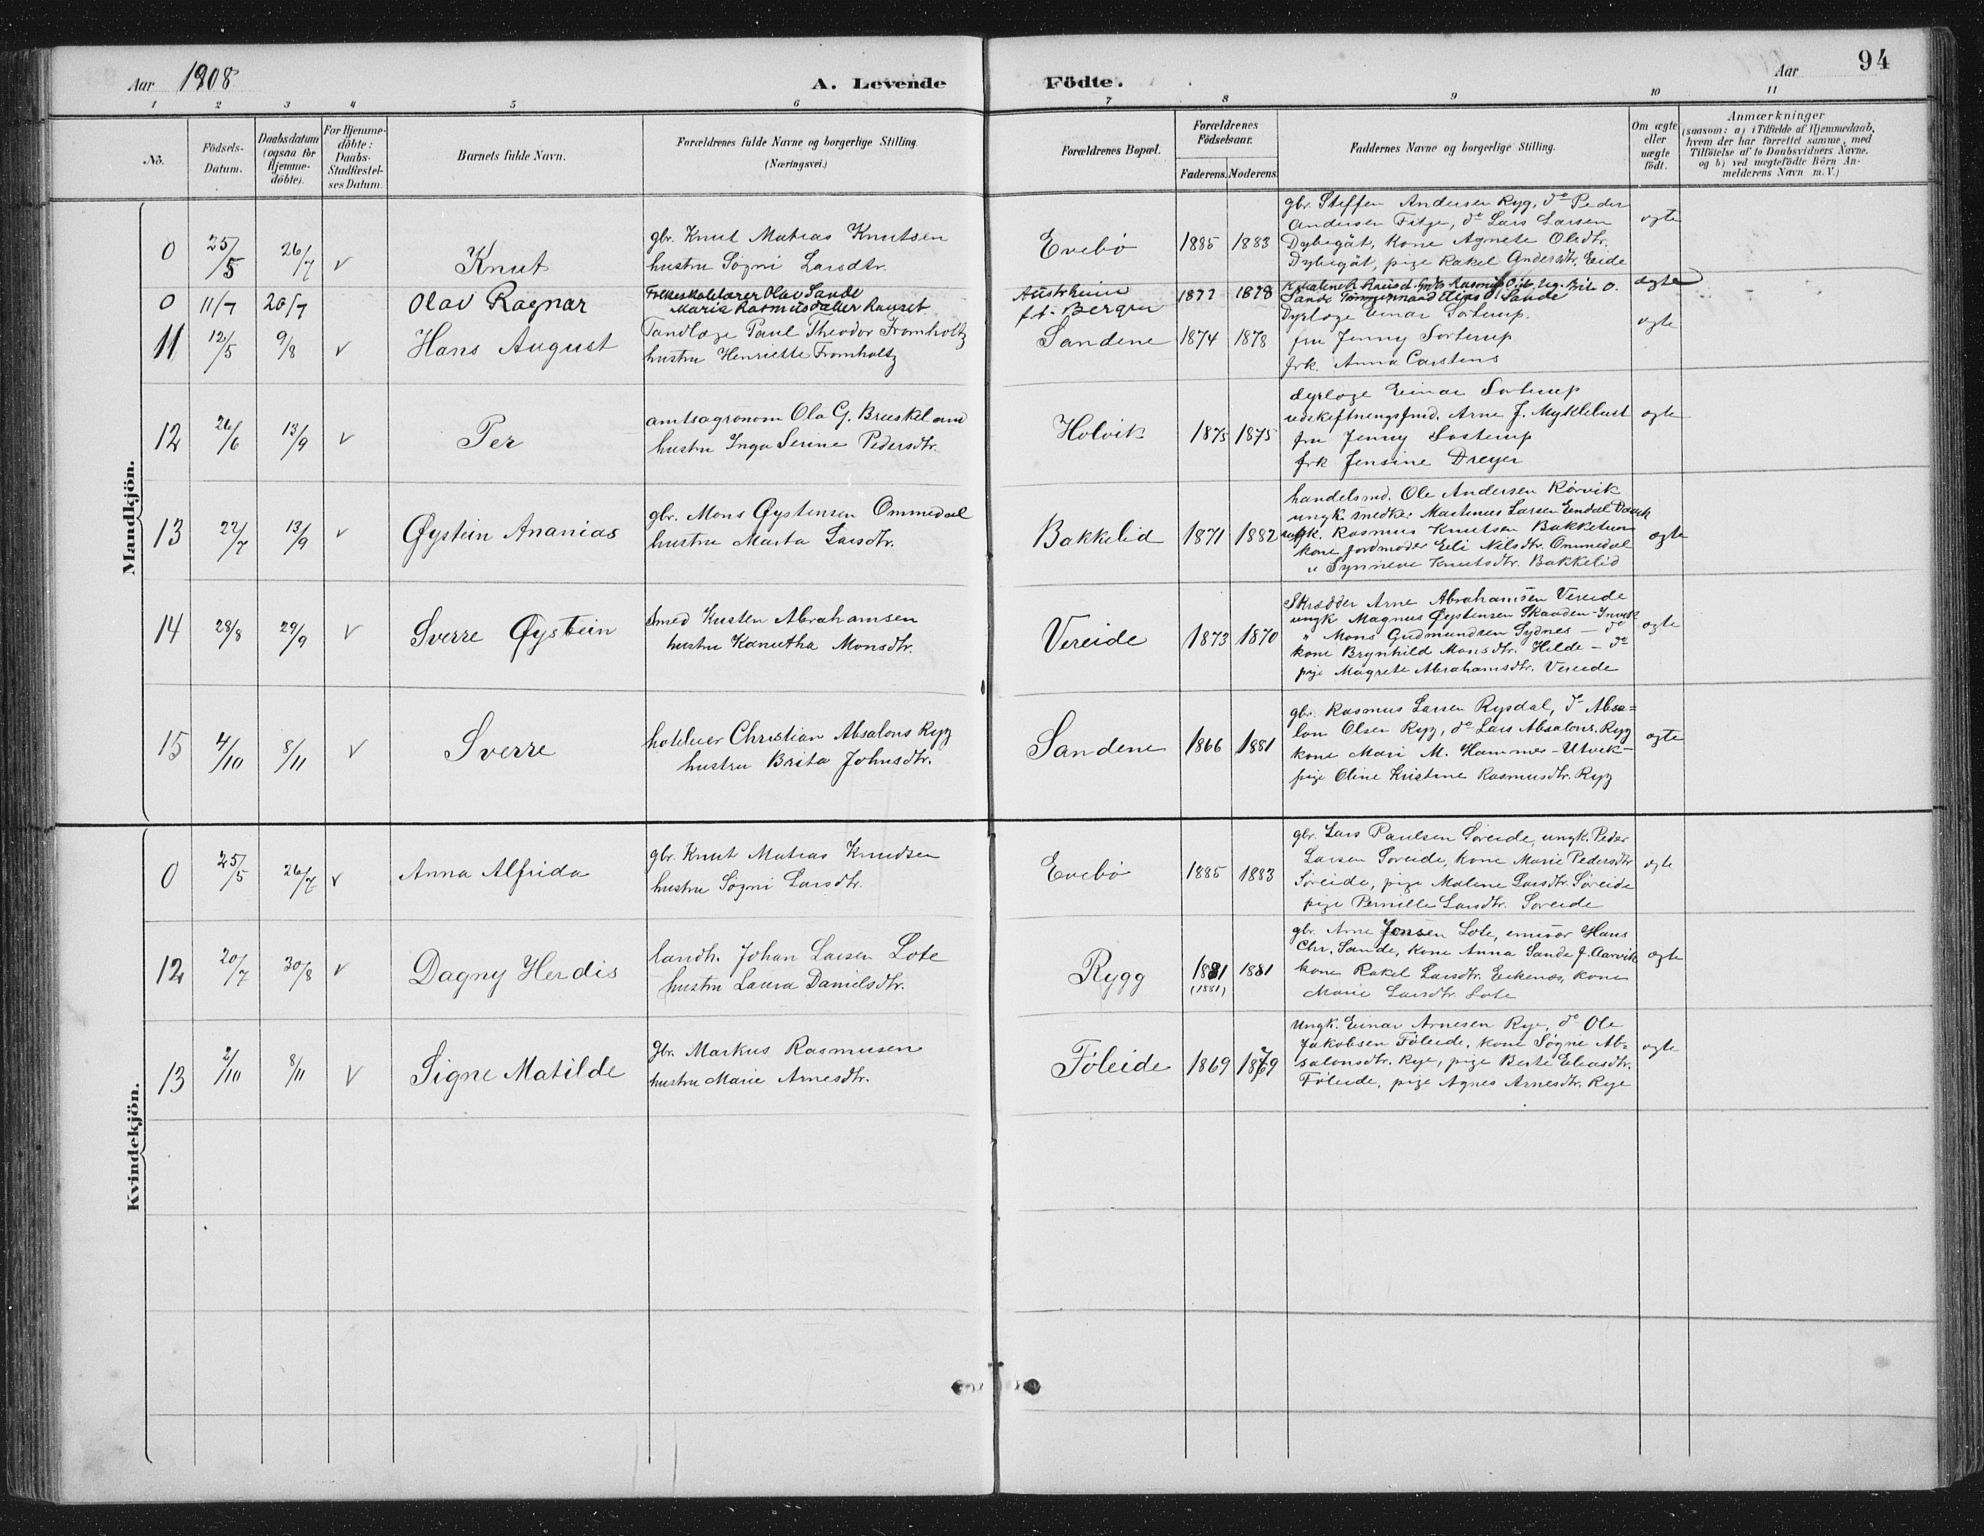 Aar 1908 A. Levende Födte. Aar 94
1 2 3 4 5 6 7 8 9 10 11
No. Födsels-Datum. Daabsdatum (ogsaa for Hjemme-döbte). For Hjemme-döbte: Daabs-Stadfæstel-ses Datum. Barnets fulde Navn. Forældrenes fulde Navne og borgerlige Stilling. (Næringsvei.) Forældrenes Bopæl. Forældrenes Födselsaar. Faderens. Moderens. Faddernes Navne og borgerlige Stilling. Om ægte eller uægte födt. Anmærkninger (saasom: a) i Tilfælde af Hjemmedaab, hvem der har forrettet samme, med Tilföielse af to Daabsvidners Navne, og b) ved uægtefödte Börn An-melderens Navn m. V.)
Mandkjön.
0 25/5 26/7 v Knut
gbr. Knut Matias Knutsen
hustru Søgni Larsdtr.
Evebø 1885 1883
gbr. Steffen Andersen Ryg, do Peder
Andersen Fitje, do Lars Larsen
Dybegåt, kone Agnete Olsdtr.
Dybegåt, pige Rakel Andersdtr. Eide
ægte
0 11/7 20/7 Olav Ragnar
Folkeskolelærer Olav Sande
Maria Rasmusdatter Rauset
Austrheim
ft. Bergen
1877 1878
Sande Tømmermand Elias O. Sande
ægte
11 12/5 9/8 v Hans August
Tandlæge Paul Theodor Fromholtz
hustru Henriette Fromholtz
Sandene 1874 1878
Dyrlæge Einar Sorterup.
fru Jenny Sorterup
frk. Anna Carstens
ægte
12 26/6 13/9 v Per
amtsagronom Ola G. Brueskeland
hustru Inga Serine Pedersdtr.
Holvik 1875 1875
dyrlæge Einar Sorterup
udskiftningsfmd. Arne J. Myklebust
fru Jenny Sorterup
frk Jensine Dreyer
ægte
13 22/7 13/9 v Øystein Ananias
gbr. Mons Øystensen Ommedal
hustru Marta Larsdtr.
Bakkelid 1871 1882
handelsmd. Ole Andersen Rørvik
ungk. snedker Martenus Larsen Endal Davik
ungk. Rasmus Knutsen Bakketun
kone jordmoder Eli Nilsdtr. Ommedal
" Synneve Knutsdtr. Bakkelid
ægte
14 28/8 29/9 v Sverre Øystein
Smed Kristen Abrahamsen
hustru Kanutha Monsdtr.
Vereide 1873 1870
Skrædder Arne Abrahamsen Vereide
ungk Magnus Øystensen Skaaden-Invik
" Mons Gudmundsen Sydnes - do
kone Brynhild Monsdtr. Hilde - do
pige Magrete Abrahamsdtr. Vereide
ægte
15 4/10 8/11 v Sverre
hotleier Christian Absalons Ryg
hustru Brita Johnsdtr.
Sandene 1866 1881
gbr. Rasmus Larsen Rysdal, do Absa=
lon Olsen Ryg, do Lars Absalons. Ryg
kone Mari M. Hammer - Utvik -
pige Oline Kristine Rasmusdtr. Ryg
ægte
Kvindekjön.
0 25/5 26/7 v Anna Alfrida
gbr. Knut Matias Knudsen
hustru Søgni Larsdtr.
Evebø 1885 1883
gbr. Lars Paulsen Søreide, ungk. Peder
Larsen Søreide, kone Marie Pedersdtr
Søreide, pige Malene Larsdtr. Søreide
pige Pernille Larsdtr. Søreide
ægte
12 20/7 30/8 v Dagny Herdis
landh. Johan Larsen Lote
hustru Laura Danielsdtr.
Rygg 1881 (1881) 1881
gbr. Arne Jonsen Lote, emisær Hans
Chr. Sande, kone Anna Sande J. Aarvik
kone Rakel Larsdtr. Eikenæs, kone
Marie Larsdtr. Lote
ægte
13 2/10 8/11 v Signe Matilde
Gbr. Markus Rasmusen
hustru Marie Arnesdtr.
Føleide 1869 1879
Ungk. Einar Arnesen Rye, do Ole
Jakobsen Føleide, kone Søgne Ab=
salonsdtr. Rye, pige Berte Eliasdtr.
Føleide, pige Agnes Arnesdtr. Rye
ægte